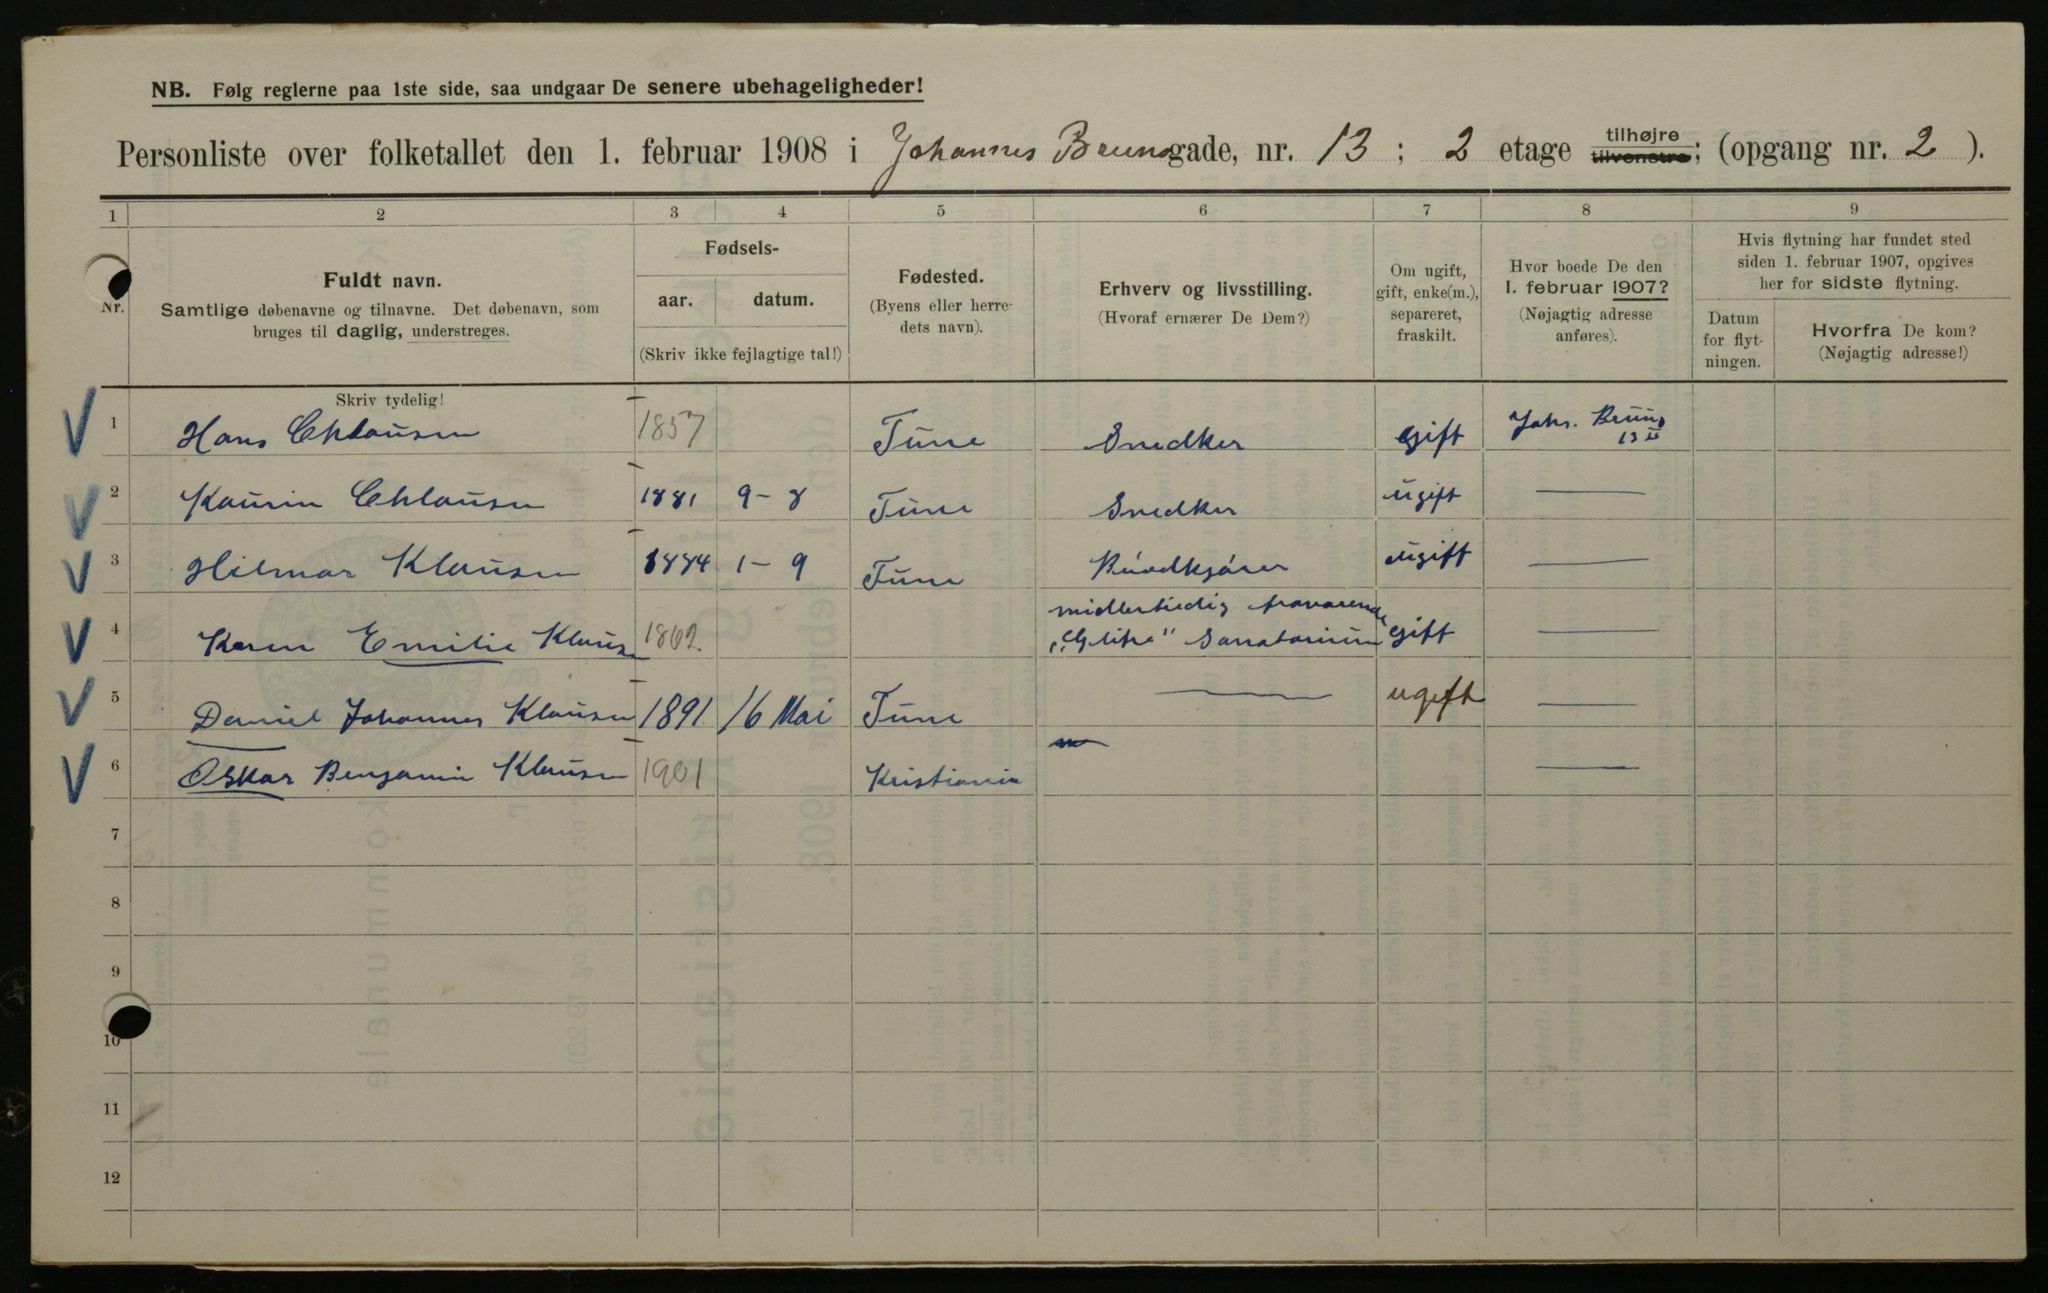 NB. Følg reglerne paa 1ste side, saa undgaar De senere ubehageligheder!
Personliste over folketallet den 1. februar 1908 i Johannes Brunsgade, nr. 13; 2 etage tilhøjre tilvenstre; (opgang nr. 2).
1 2 3 4 5 6 7 8 9
Nr.
Fuldt navn.
Samtlige døbenavne og tilnavne. Det døbenavn, som
bruges til daglig, understreges.
Fødsels-
aar. datum.
(Skriv ikke fejlagtige tal!)
Fødested.
(Byens eller herre-
dets navn).
Erhverv og livsstilling.
(Hvoraf ernærer De Dem?)
Om ugift,
gift, enke(m.),
separeret,
fraskilt.
Hvor boede De den
1. februar 1907?
(Nøjagtig adresse
anføres).
Hvis flytning har fundet sted
siden 1. februar 1907, opgives
her for sidste flytning.
Datum
for flyt-
ningen.
Hvorfra De kom?
(Nøjagtig adresse!)
Skriv tydelig!
1 Hans Chlausen 1857 Tune Snedker gift Johs. Bruns 13 II
2 Chlausen 1881 9-8 Tune Snedker ugift
3 Hilmar Klausen 1884 1-9 Tune ugift
midlertidig fraværende
4 Karen Emilie Klausen 1862 Sanatorium gift
5 Daniel Johannes Klausen 1891 16 Mai Tune ugift
6 Oskar Benjamin Klausen 1901 Kristiania
7
8
9
10
11
12